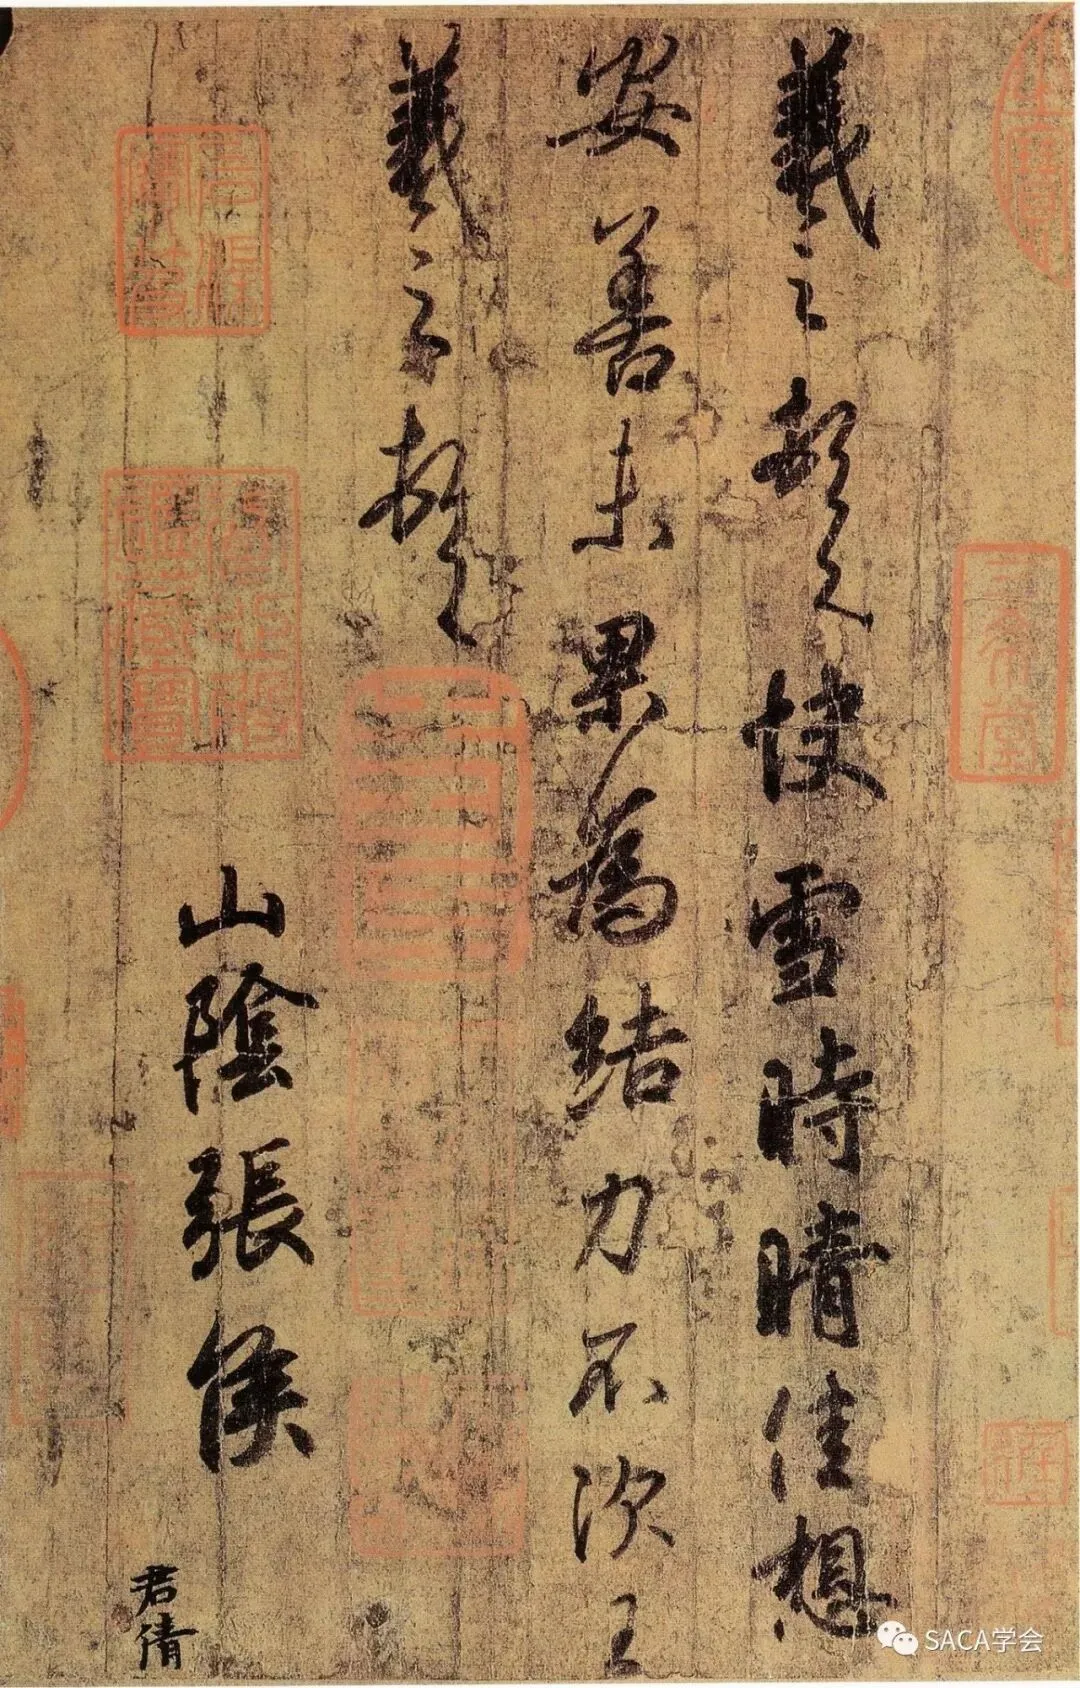 羲之頓首快雪時晴佳想
安善未果為結力不次王
羲之頓首
山陰張侯
君倩
三希堂
SACA学会